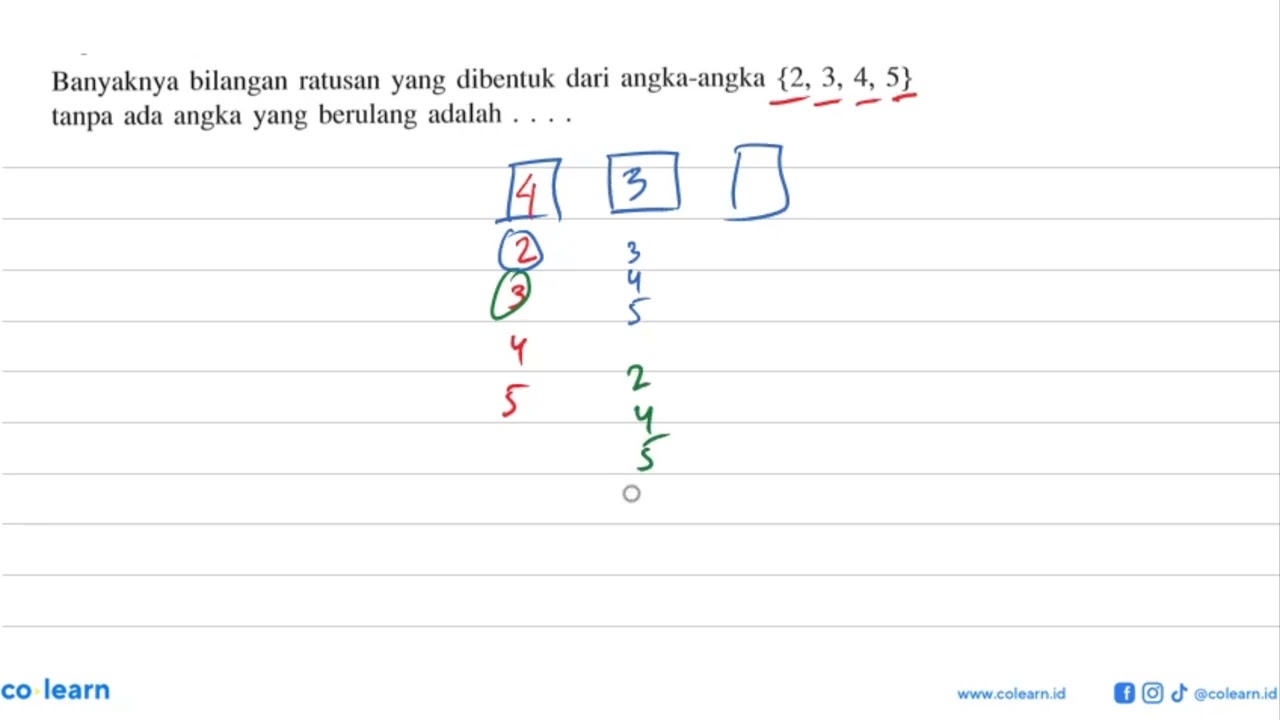 Banyaknya bilangan ratusan yang dibentuk dari angka-angka {2, 3, 4, 5}
tanpa ada angka yang berulang adalah . . . .
4 3
2 3
4
3 5
4
2
5 4
5
co learn
www.colearn.id @colearn.id